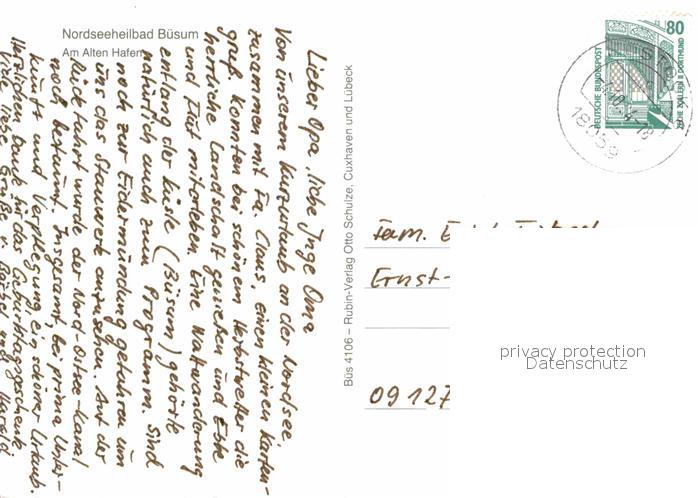 Nordseeheilbad Büsum
Am Alten Hafen
Lieber Opa, liebe Inge Oma
Von unserem Kurzurlaub an der Nordsee
zusammen mit Fa. Claus, einen kleinen Karten-
gruß. Konnten bei schönem Herbstwetter die
herrliche Landschaft genießen und Ebbe
und Flut miterleben. Eine Wattwanderung
entlang der Küste (Büsum) gehörte
natürlich auch zum Programm. Sind
noch zur Eidermündung gefahren um
uns das Stauwerk anzusehen. Auf der
Rückfahrt wurde der Nord-Ostsee-Kanal
noch bestaunt. Insgesamt, bei prima Unter-
kunft und Verpflegung, ein schöner Urlaub.
Herzlichen Dank für das Geburtstagsgeschenk
Viele liebe Grüße v. Harald
Büs 4106 – Rubin-Verlag Otto Schulze, Cuxhaven und Lübeck
80
DEUTSCHE BUNDESPOST
ZECHE ZOLLERN II DORTMUND
18559
Fam.
Ernst-
09127
privacy protection
Datenschutz